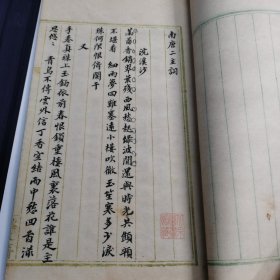 南唐二主詞
浣溪沙
菡萏香銷翠葉殘西風愁起綠波間還與時光共顦顇
不堪看 細雨夢回雞塞遠小樓吹徹玉笙寒多少淚
珠何限恨倚闌干
又
手卷真珠上玉鉤依前春恨鎖重樓風裏落花誰是主
思悠悠 青鳥不傳雲外信丁香空結雨中愁回首綠